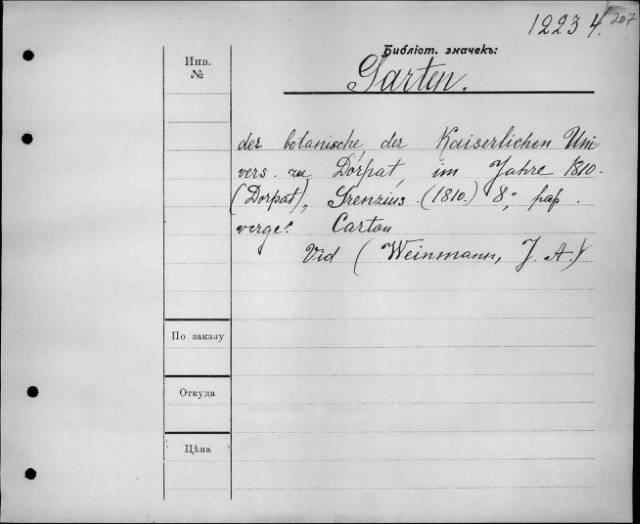 12234. 207
Библіот. значекъ:
Garten.
Инв.
№
der botanische, der Kaiserlichen Uni
vers. zu Dorpat, im Jahre 1810.
(Dorpat), Grenzius. (1810.) 8°, pap.
vergé. Carton
Vid (Weinmann, J. A.)
По заказу
Откуда
Цѣна